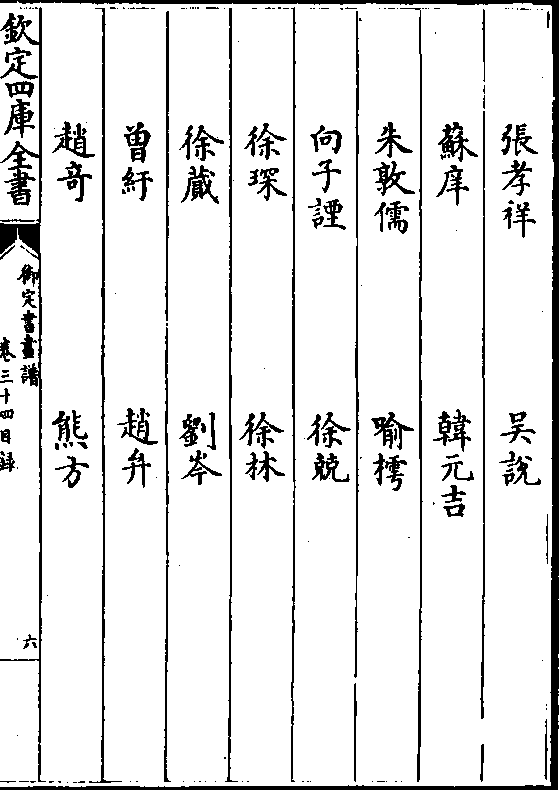 張孝祥 吳說
蘇庠 韓元吉
朱敦儒 喻樗
向子諲 徐兢
徐琛 徐林
徐蕆 劉岑
曾紆 趙弁
趙竒 熊方
欽定四庫全書
御定書畫譜
卷三十四目録
六